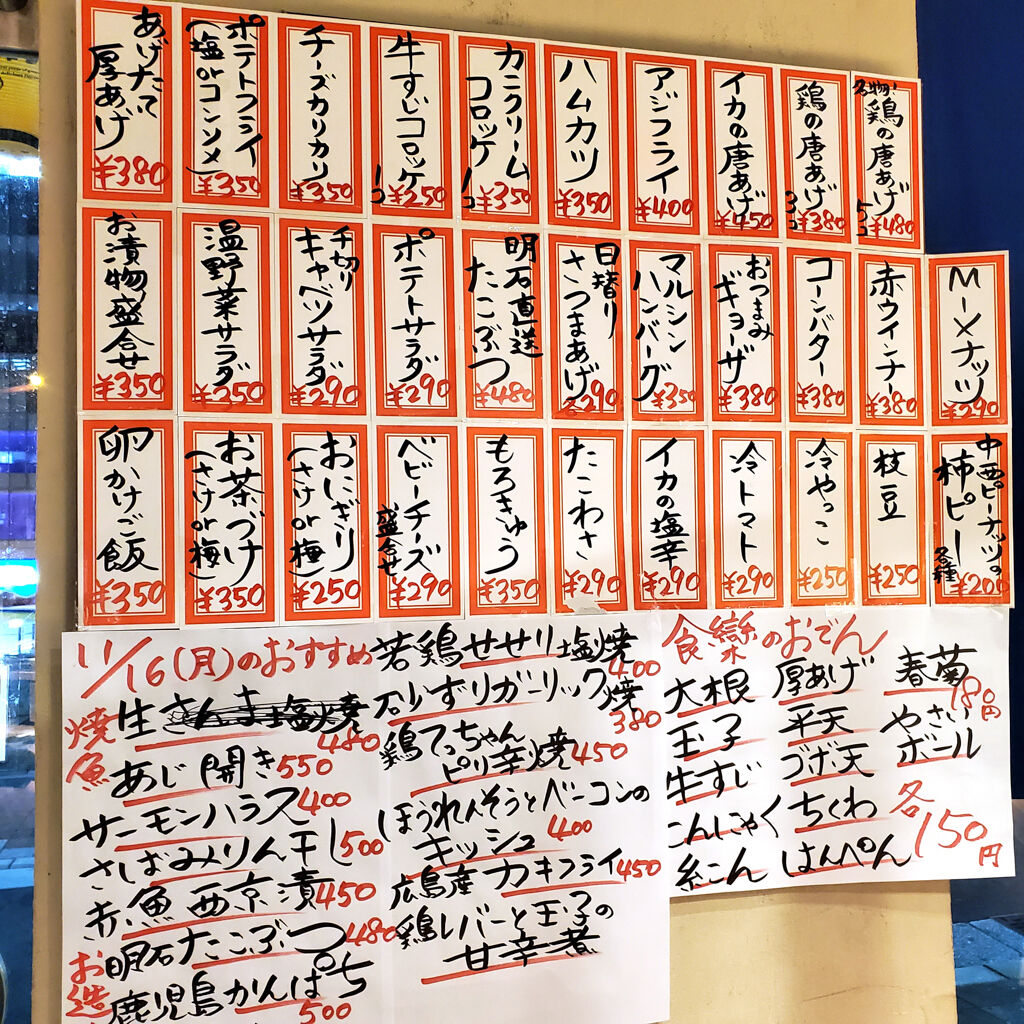 名物!
鶏の唐あげ
5コ
¥480
鶏の唐あげ
3コ
¥380
イカの唐あげ
¥450
アジフライ
¥400
ハムカツ
¥350
カニクリーム
コロッケ
1コ
¥350
牛すじコロッケ
1コ
¥250
チーズカリカリ
¥350
ポテトフライ
(塩orコンソメ)
¥350
あげたて
厚あげ
¥380
Mーメナッツ
¥290
赤ウインナー
¥380
コーンバター
¥380
おつまみ
ギョーザ
¥380
マルシン
ハンバーグ
¥350
日替り
さつまあげ
各290
明石直送
たこぶつ
¥480
ポテトサラダ
¥290
千切り
キャベツサラダ
¥290
温野菜サラダ
¥350
お漬物盛合せ
¥350
中西ピーナッツの
柿ピー
各種
¥200
枝豆
¥250
冷やっこ
¥250
冷トマト
¥290
イカの塩辛
¥290
たこわさ
¥290
もろきゅう
¥350
ベビーチーズ
盛合せ
¥290
おにぎり
(さけor梅)
¥250
お茶づけ
(さけor梅)
¥350
卵かけご飯
¥350
11/16(月)のおすすめ
焼魚
生さんま塩焼
480
あじ開き 550
サーモンハラス 400
さばみりん干し 500
赤魚西京漬 450
お造
明石たこぶつ 480
鹿児島かんぱち
500
若鶏せせり塩焼
400
石少ずりガーリック焼
380
鶏てっちゃん
ピリ辛焼 450
ほうれんそうとベーコンの
キッシュ 400
広島産カキフライ 450
鶏レバーと玉子の
甘辛煮
食樂のおでん
大根
玉子
牛すじ
こんにゃく
糸こん
厚あげ
平天
ゴボ天
ちくわ
はんぺん
春菊
180円
やさい
ボール
各150円